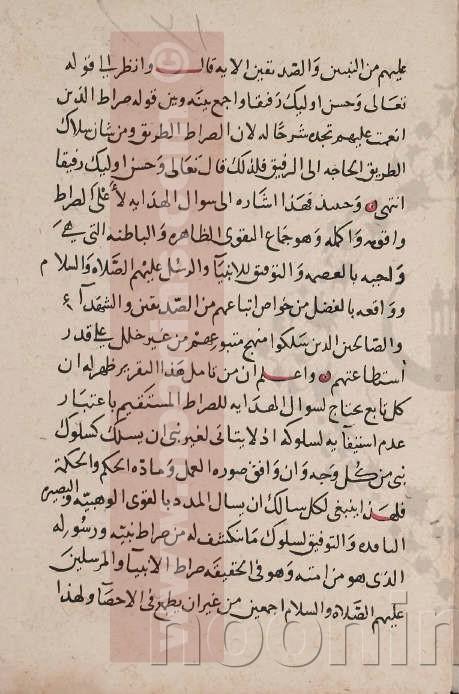 عليهم من النبيين والصديقين الايه قال وانظر الى قوله
تعالى وحسن اوليك رفيقا واجمع بينه وبين قوله صراط الذين
انعمت عليهم تجده شرحا له لان الصراط الطريق ومن شان سلاك
الطريق الحاجه الى الرفيق فلذلك قال تعالى وحسن اوليك رفيقا
انتهى وحينيذ فهذا اشاره الى سوال الهدايه لأعلى الصراط
واقومه واكمله وهو جماع التقوى الظاهره والباطنه التي هي
واجبه بالعصمه والتوفيق للانبيآ والرسل عليهم الصلاه والسلام
وواقعه بالفضل من خواص اتباعهم من الصديقين والشهدآء
والصالحين الذين سلكوا منهج متبوعهم من غير خلل على قدر
استطاعتهم واعلم ان من تامل هذا التقرير ظهر له ان
كل تابع يحتاج لسوال الهدايه للصراط المستقيم باعتبار
عدم استيفآيه لسلوكه اذ لا يتاتى لغير نبى ان يسلك كسلوك
نبى من كل وجه وان وافق صوره العمل ومادة الحكم والحكمة
فلهذا ينبغى لكل سالك ان يسال المدد بالقوى الوهبيه والبصيره
النافده والتوفيق لسلوك ما ينكشف له من صراط نبيه ورسوله
الذى هو من امته وهو فى الحقيقه صراط الانبيآ والمرسلين
عليهم الصلاه والسلام اجمعين من غير ان يطمع فى الاحصآ ولهذا
www.noorinfo
noorin